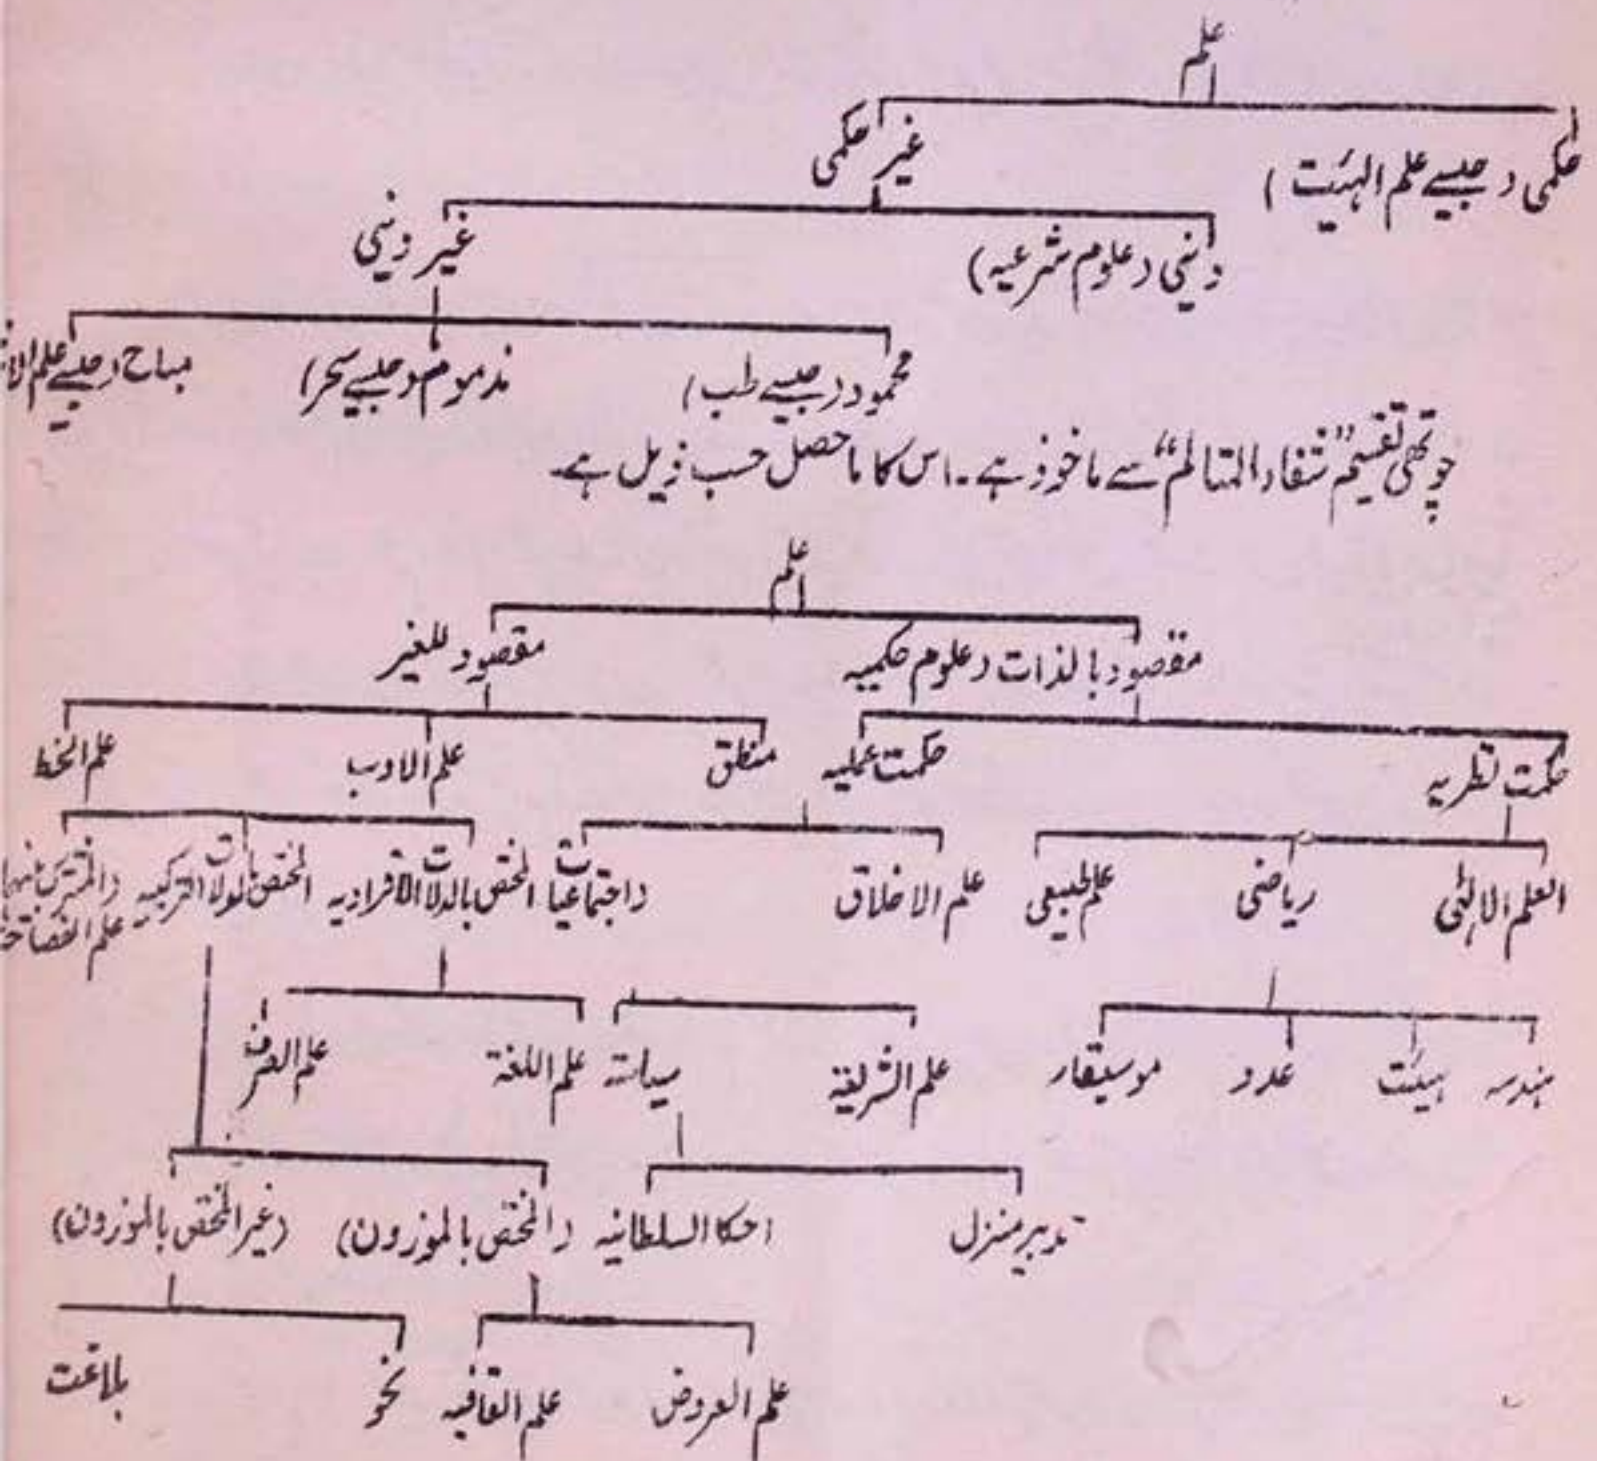 علم
حکمی (جیسے علم الہیئت) غیر حکمی
دینی (علوم شرعیہ) غیر دینی
محمود (جیسے طب) مذموم (جیسے سحر) مباح (جیسے علم
چوتھی تقسیم ”شفاء المتالم“ سے ماخوذ ہے۔ اس کا ماحصل حسب ذیل ہے۔
علم
مقصود بالذات (علوم حکمیہ مقصود للغیر
حکمت نظریہ حکمت عملیہ منطق علم الادب علم الخط
العلم الالٰہی ریاضی علم طبیعی علم الاخلاق (اجتماعیات المختص بالدلالات الافرادیہ المختص بالدلالات الترکیبیہ (المشترک بینہما
علم الفصاحۃ
ہندسہ ہیئت عدد موسیقار علم الشریعۃ سیاستہ علم اللغۃ علم الصرف
تدبیر منزل احکا السلطانیہ (المختص بالموزون) (غیر المختص بالموزون)
علم العروض علم القافیہ نحو بلاغت